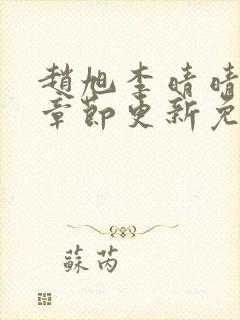 趙旭李晴晴
章節更新免
蘇芮